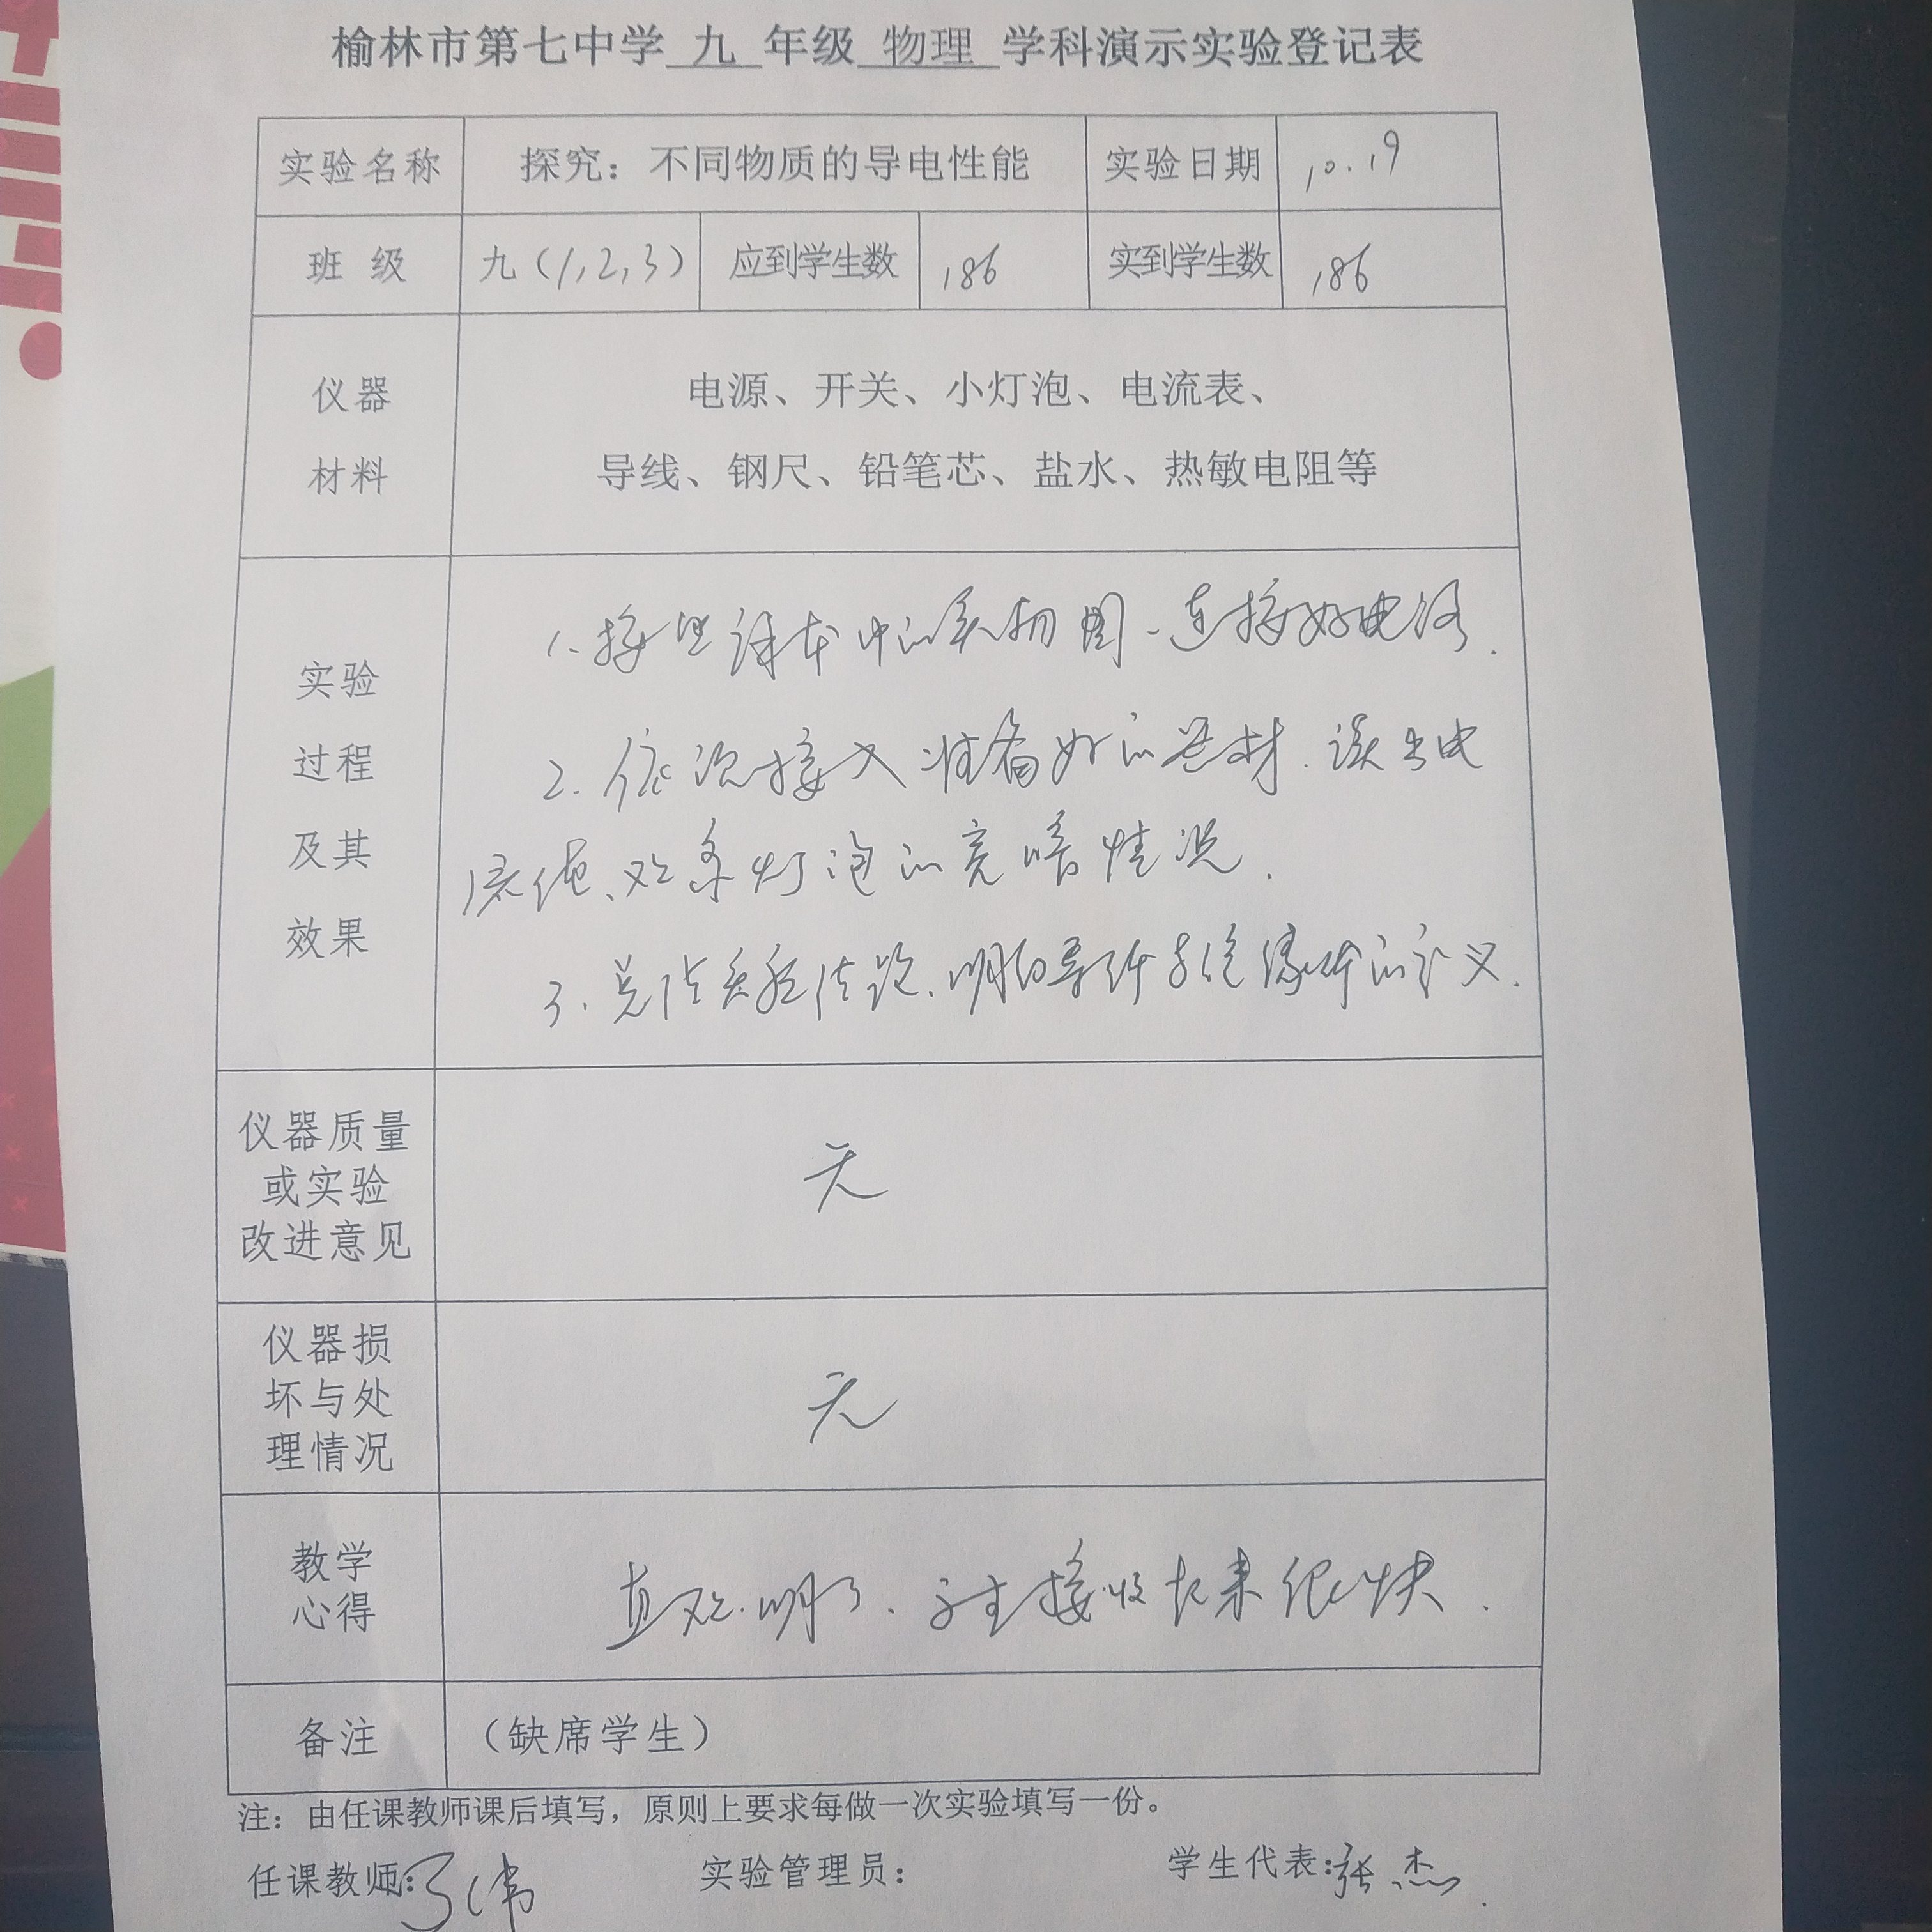 榆林市第七中学 九 年级 物理 学科演示实验登记表
实验名称 探究：不同物质的导电性能 实验日期 10.19
班 级 九（1,2,3） 应到学生数 186 实到学生数 186
仪器
材料
电源、开关、小灯泡、电流表、
导线、钢尺、铅笔芯、盐水、热敏电阻等
实验
过程
及其
效果
1.按照课本中的实物图、连接好电路.
2.依次接入准备好的器材.读出电
流值、观察灯泡的亮暗情况.
3.总结实验结论.明白导体与绝缘体的定义.
仪器质量
或实验
改进意见
无
仪器损
坏与处
理情况
无
教学
心得
直观.明了.学生接收起来很快.
备注 （缺席学生）
注：由任课教师课后填写，原则上要求每做一次实验填写一份。
任课教师: 实验管理员： 学生代表:张杰.